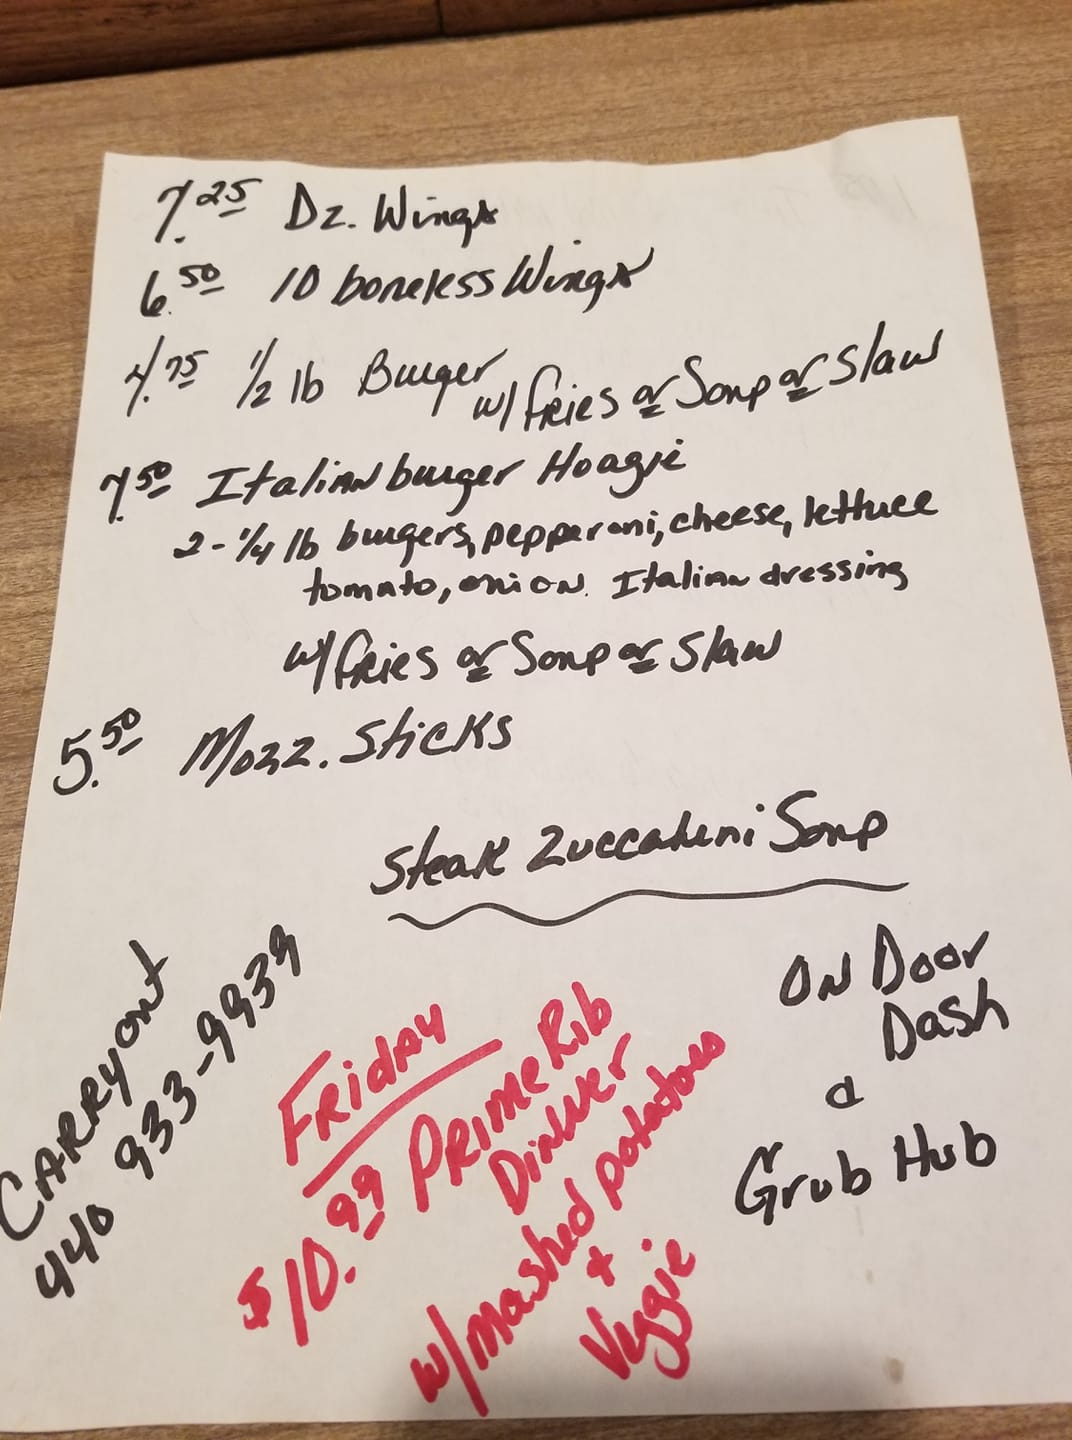 7.25 Dz. Wings
6.50 10 boneless Wings
4.75 1/2 lb Burger w/ fries or Soup or Slaw
7.50 Italian burger Hoagie
2-1/4 lb burgers, pepparoni, cheese, lettuce
tomato, onion. Italian dressing
w/ fries or Soup or Slaw
5.50 Mozz. Sticks
Steak Zuccahini Soup
CARRYout
440 933-9939
FRiday
$10.99 PRime Rib
Dinner
w/ mashed potatoes
+
Veggie
ON Door
Dash
&
Grub Hub